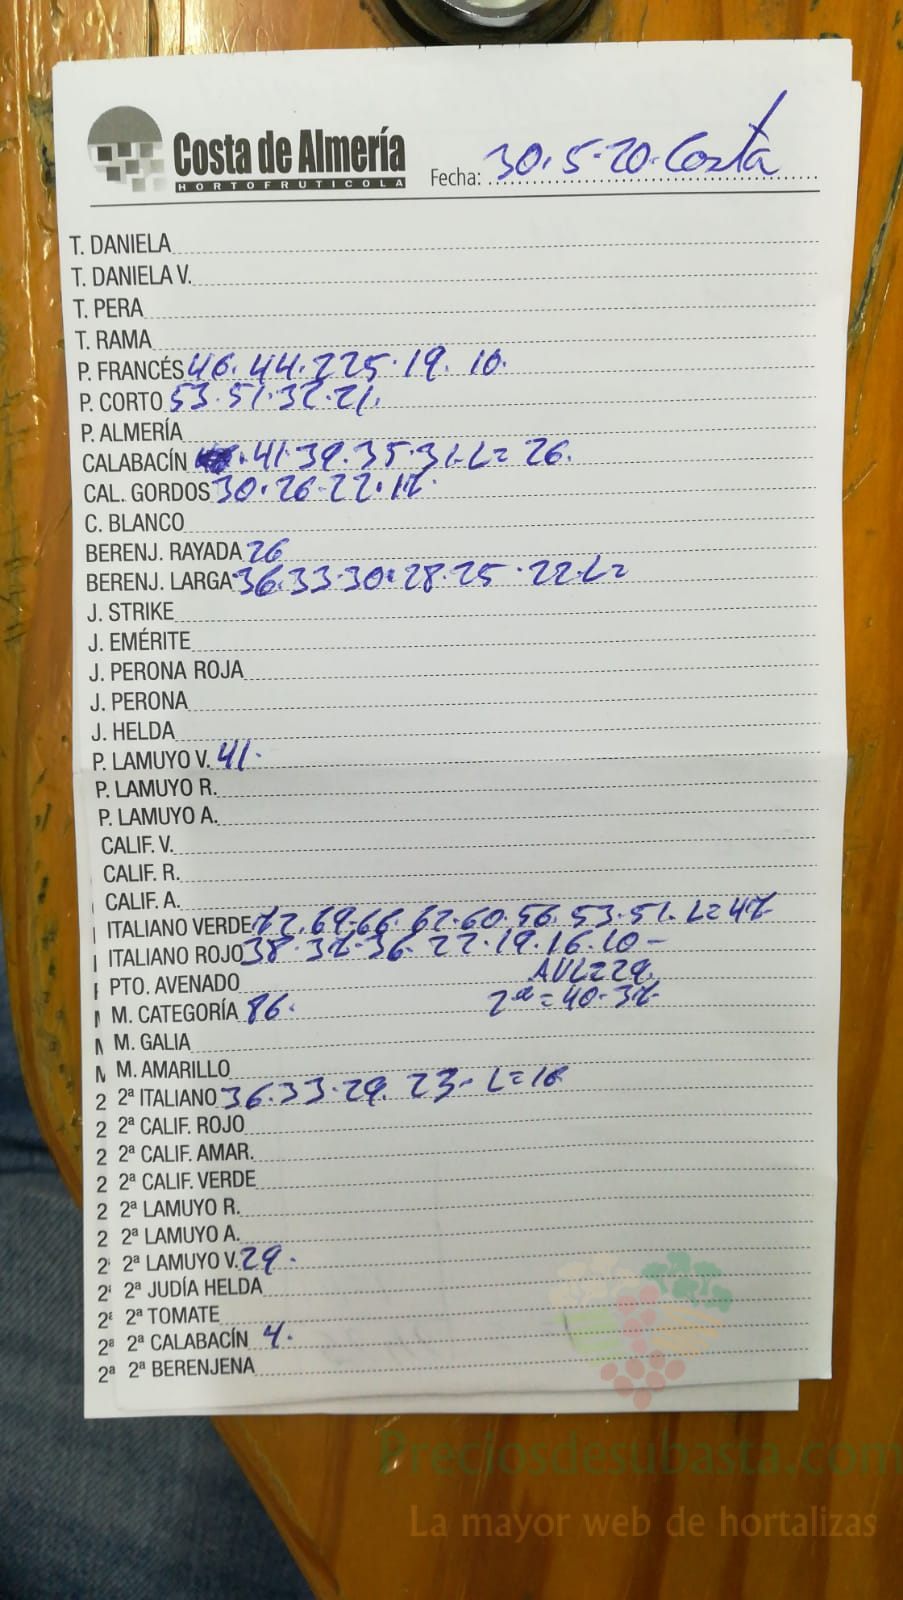 Costa de Almería
HORTOFRUTICOLA
Fecha: 30.5.20. Costa
T. DANIELA
T. DANIELA V.
T. PERA
T. RAMA
P. FRANCÉS 46. 44. 225. 19. 10.
P. CORTO 53. 51. 32. 21.
P. ALMERÍA
CALABACÍN 41. 39. 35. 31. L= 26.
CAL. GORDOS 30. 26. 22.
C. BLANCO
BERENJ. RAYADA 26
BERENJ. LARGA 36. 33. 30. 28. 25. 22. L=
J. STRIKE
J. EMÉRITE
J. PERONA ROJA
J. PERONA
J. HELDA
P. LAMUYO V. 41.
P. LAMUYO R.
P. LAMUYO A.
CALIF. V.
CALIF. R.
CALIF. A.
ITALIANO VERDE 72. 69. 66. 62. 60. 56. 53. 51. L=
ITALIANO ROJO 38. 36. 22. 19. 16. 10 -
PTO. AVENADO
M. CATEGORÍA 86. 2ª = 40.
M. GALIA
M. AMARILLO
2ª ITALIANO 36. 33. 29. 23 - L=
2ª CALIF. ROJO
2ª CALIF. AMAR.
2ª CALIF. VERDE
2ª LAMUYO R.
2ª LAMUYO A.
2ª LAMUYO V. 29.
2ª JUDÍA HELDA
2ª TOMATE
2ª CALABACÍN 4.
2ª BERENJENA
Preciosdesubasta.com
La mayor web de hortalizas